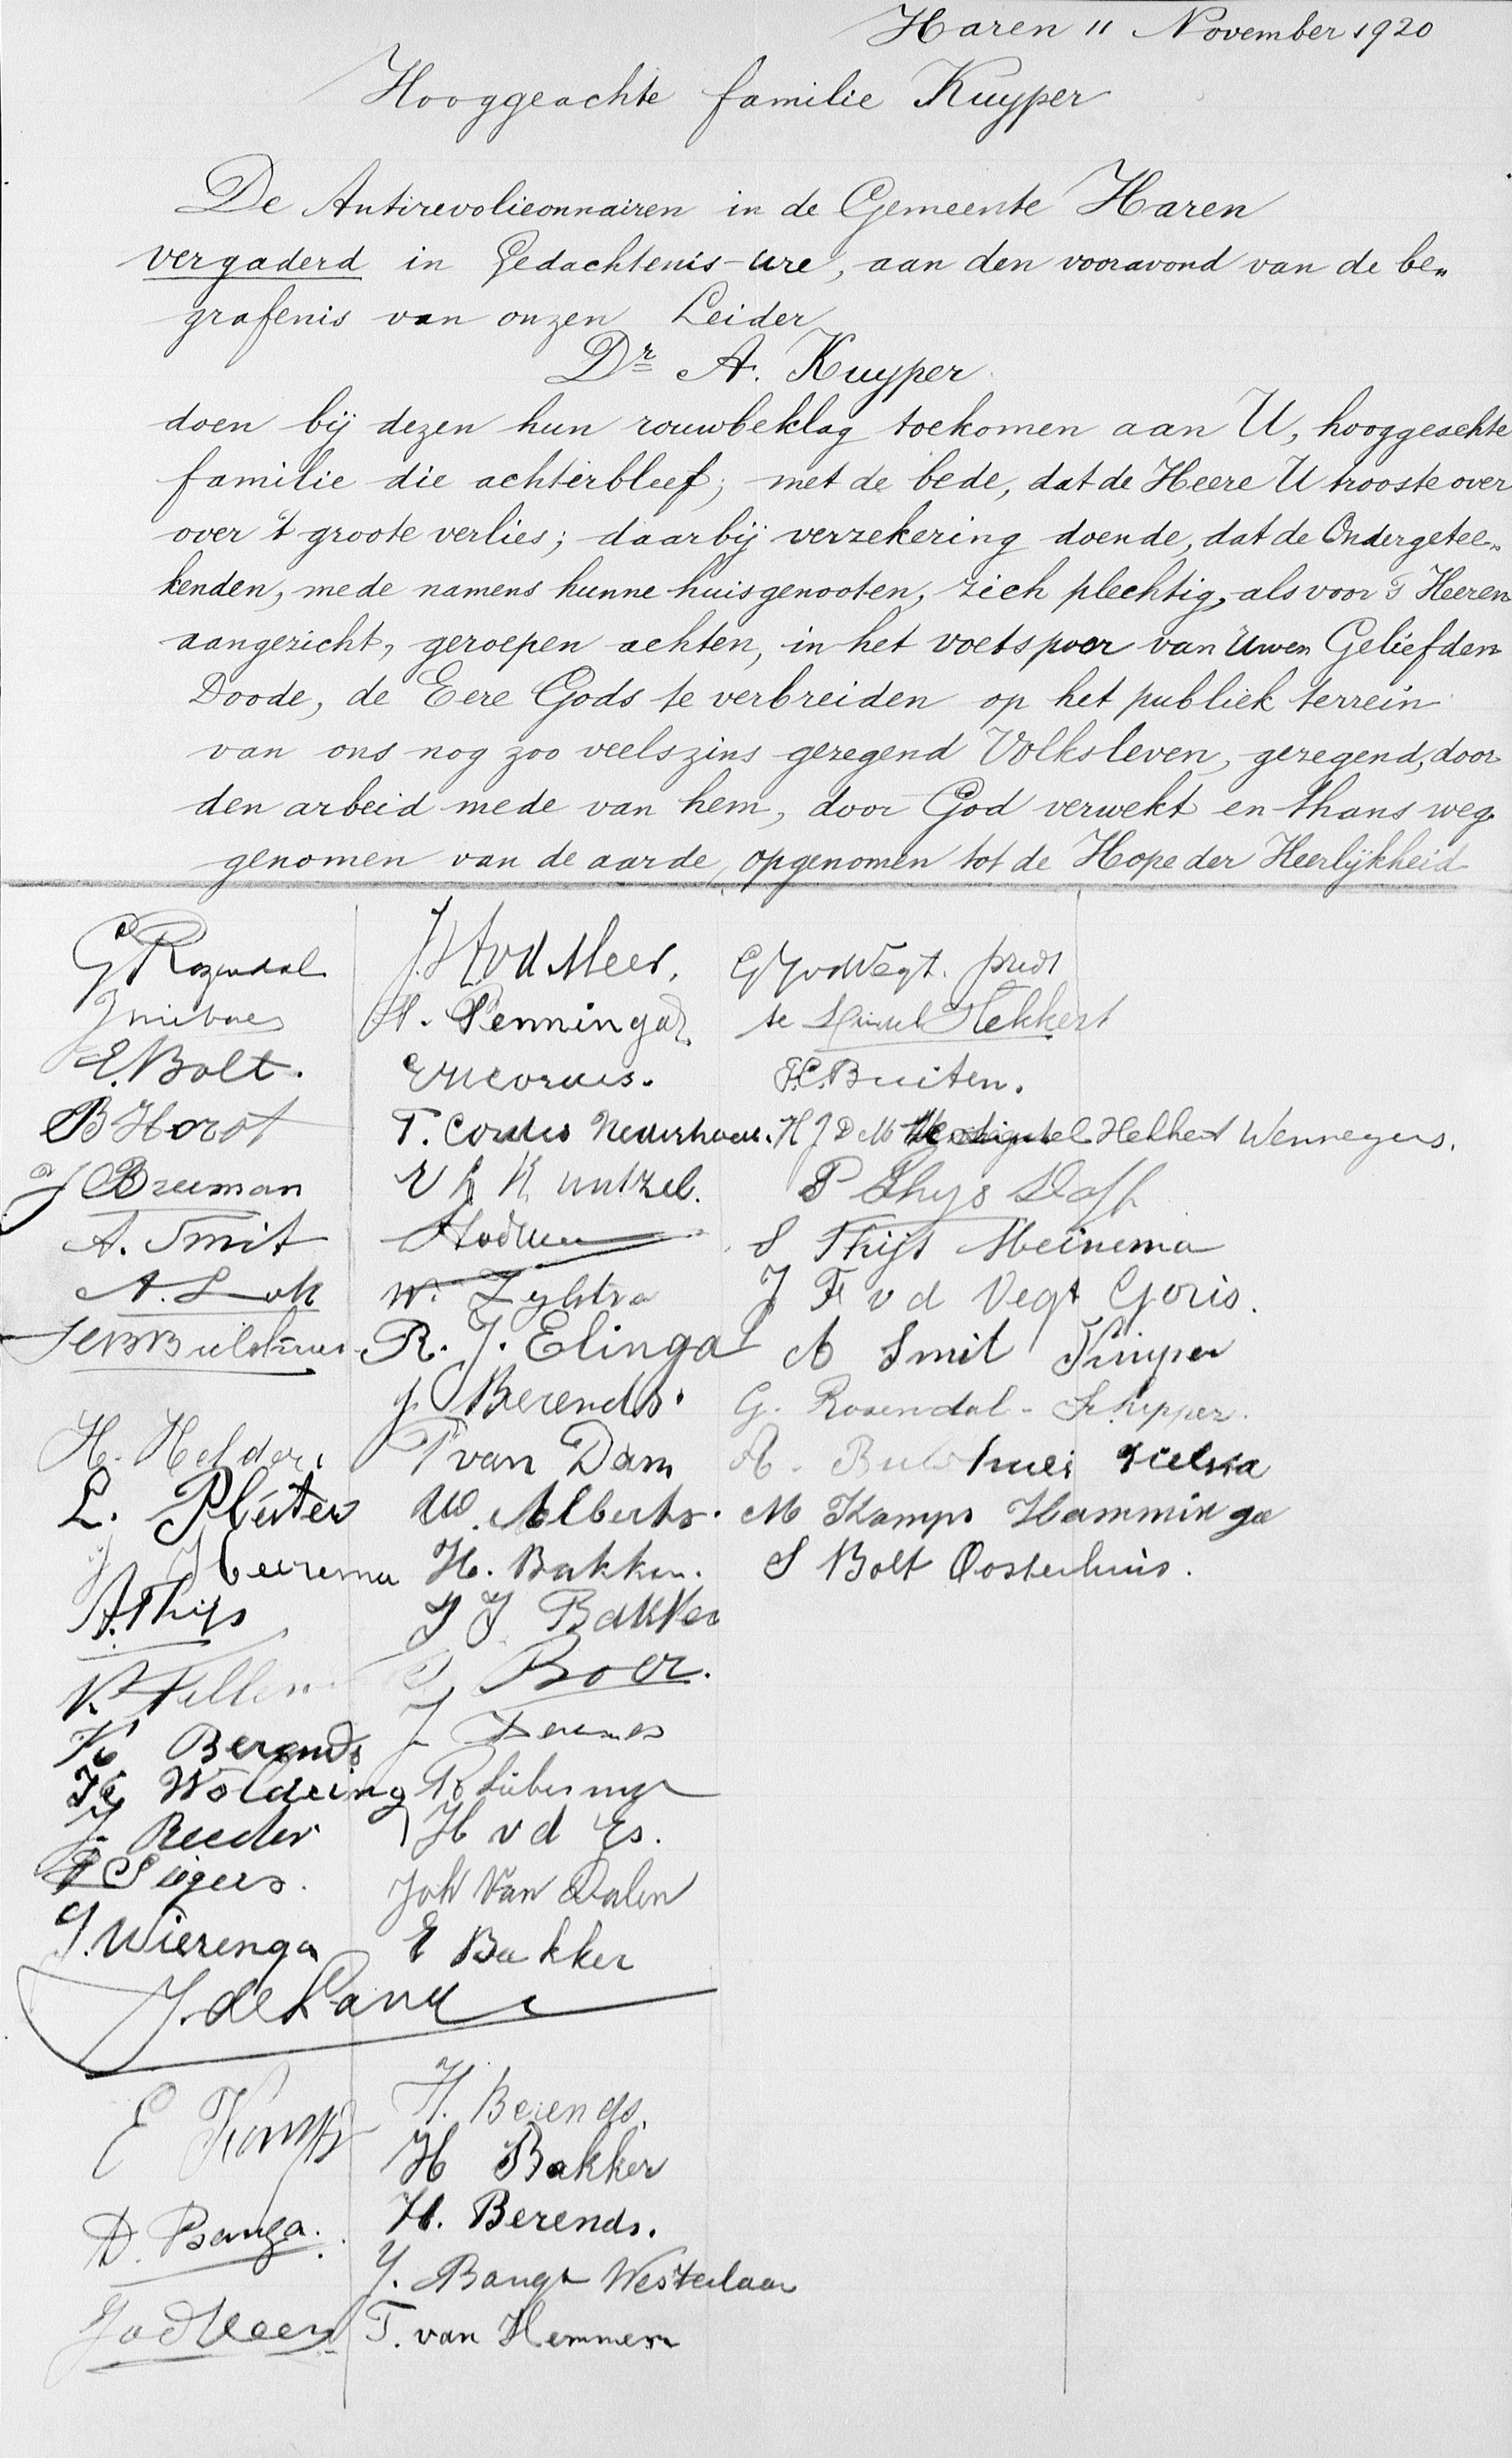 Haren 11 November 1920
Hooggeachte familie Kuyper
De Antirevolieonnairen in de Gemeente Haren
vergaderd in Gedachtenis-ure, aan den vooravond van de be„
grafenis van onzen Leider
Dr A. Kuyper
doen bij dezen hun rouwbeklag toekomen aan U, hooggeachte
familie die achterbleef; met de bede, dat de Heere U trooste over
over 't groote verlies; daarbij verzekering doende, dat de Ondergetee„
kenden, mede namens hunne huisgenooten, zich plechtig, als voor 's Heeren
aangezicht, geroepen achten, in het voetspoor van Uwen Geliefden
Doode, de Eere Gods te verbreiden op het publiek terrein
van ons nog zoo veelszins gezegend Volksleven, gezegend, door
den arbeid mede van hem, door God verwekt en thans weg„
genomen van de aarde, opgenomen tot de Hope der Heerlijkheid
G Rozendal
E. Bolt.
B Horst
J Breeman
A. Smit
A. Lok
H. Helder
L. Pleiter
J Heerema
A. Thijs
K Berends
H Woldring
J. Reeder
P Siegers.
J. Wierenga
E Kamps
D. Banga.
J v d Veen
J. H v d Meer.
H. Penninga
T. Cordes Nederhoed.
W. Zylstra
R. J. Elinga
J. Berends.
P van Dam
W. Alberts.
H. Bakker.
J J Bakker
Boer.
H v d Es.
Joh Van Dalen
E Bakker
H. Berends.
H Bakker
H. Berends.
J. Banga Westerlaan
T. van Hemmen
G J v d Vegt. predt
Hekkert
H. Buiten.
H J D M Hekkert Wennegers.
P Thijs
S Thijs Meinema
J F v d Vegt Goris.
A Smit Kuiper
G. Rosendal - Schipper.
M Kamps Hamminga
S Bolt Oosterhuis.